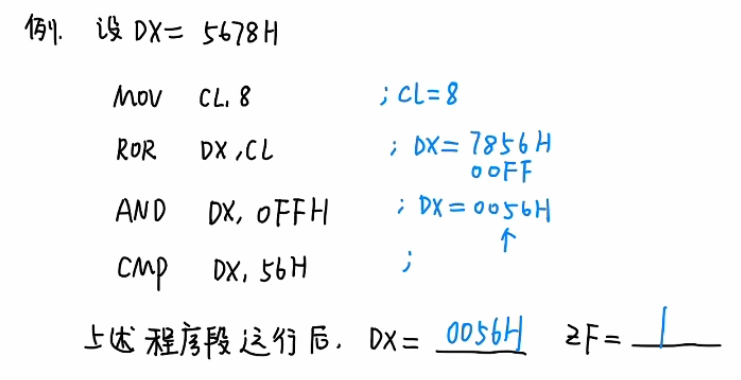 例. 设 DX= 5678H
MOV CL, 8 ; CL=8
ROR DX, CL ; DX=7856H
00FF
AND DX, 0FFH ; DX=0056H
↑
CMP DX, 56H ;
上述程序段运行后. DX= 0056H ZF= 1